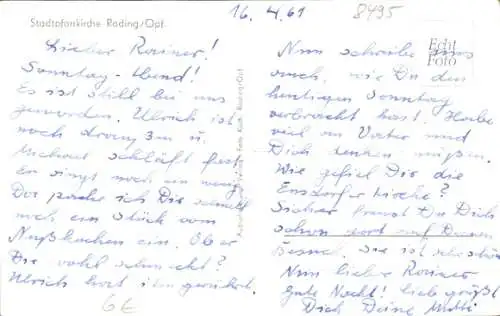 Stadtpfarrkirche Roding/Opf.
16. 4. 61
8495
Echt
Foto
Lieber Rainer!
Sonntag-Abend!
Es ist still bei uns
geworden. Ulrich ist
noch drangsam u.
Michael schläft fest.
Er singt noch ein wenig.
Da packe ich Dir schnell
noch ein Stück vom
Nußkuchen ein. Ob er
Dir wohl schmeckt?
Ulrich hat ihn gerührt.
6€
Nun schreibe uns
auch, wie Du den
heutigen Sonntag
verbracht hast. Habe
viel an Vater und
Dich denken müßen.
Wie gefiel Dir die
Ensdorfer Kirche?
Sicher freust Du Dich
schon jetzt auf Deinen
Besuch. Sie ist sehr schön
Nun lieber Rainer
Gute Nacht! lieb grüßt
Dich Deine Mutti